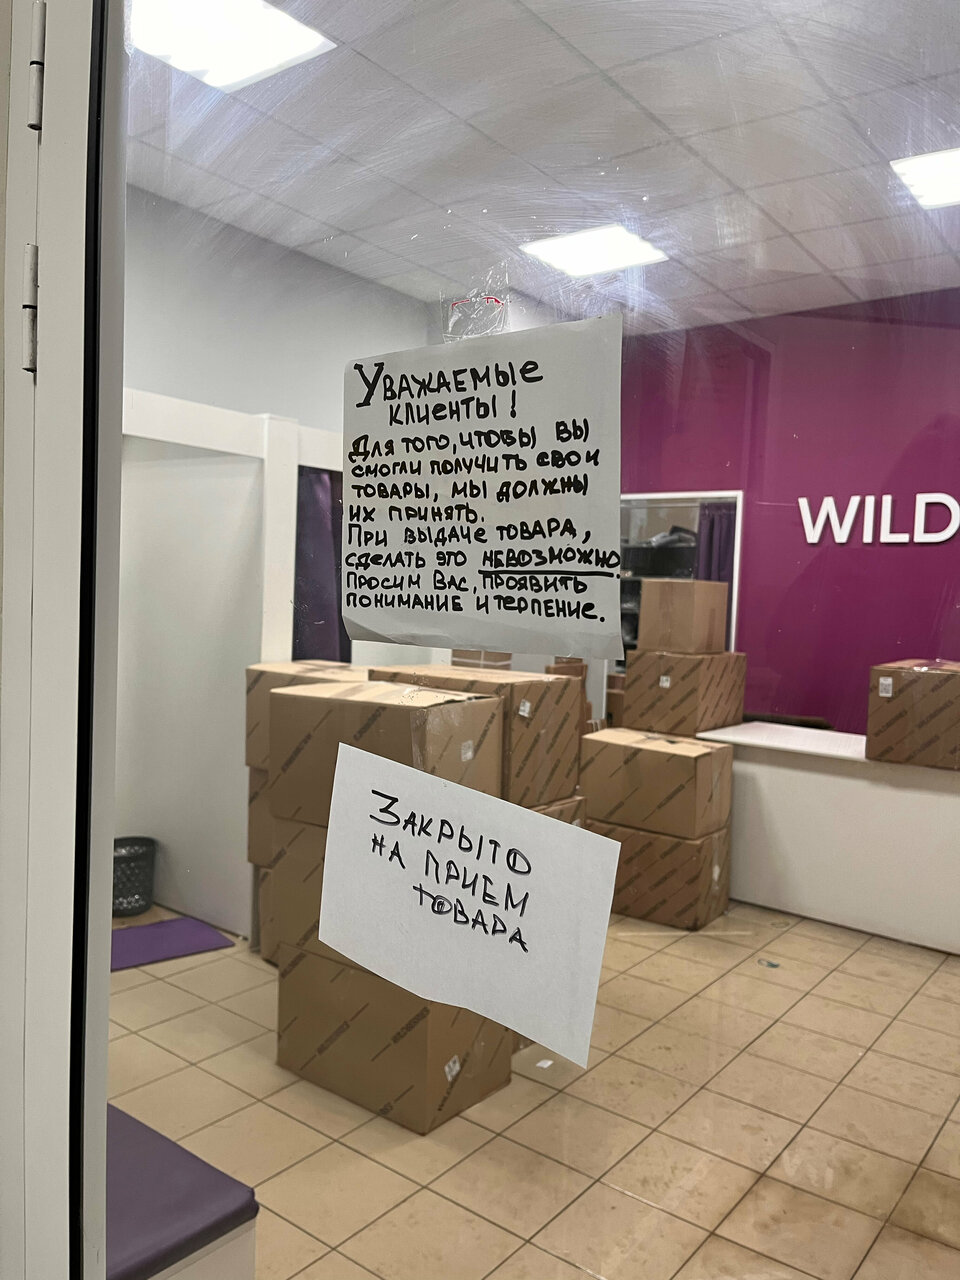 Уважаемые
клиенты!
Для того, чтобы вы
смогли получить свои
товары, мы должны
их принять.
При выдаче товара,
сделать это невозможно
Просим Вас, проявить
понимание и терпение.
WILD
Закрыто
на прием
товара